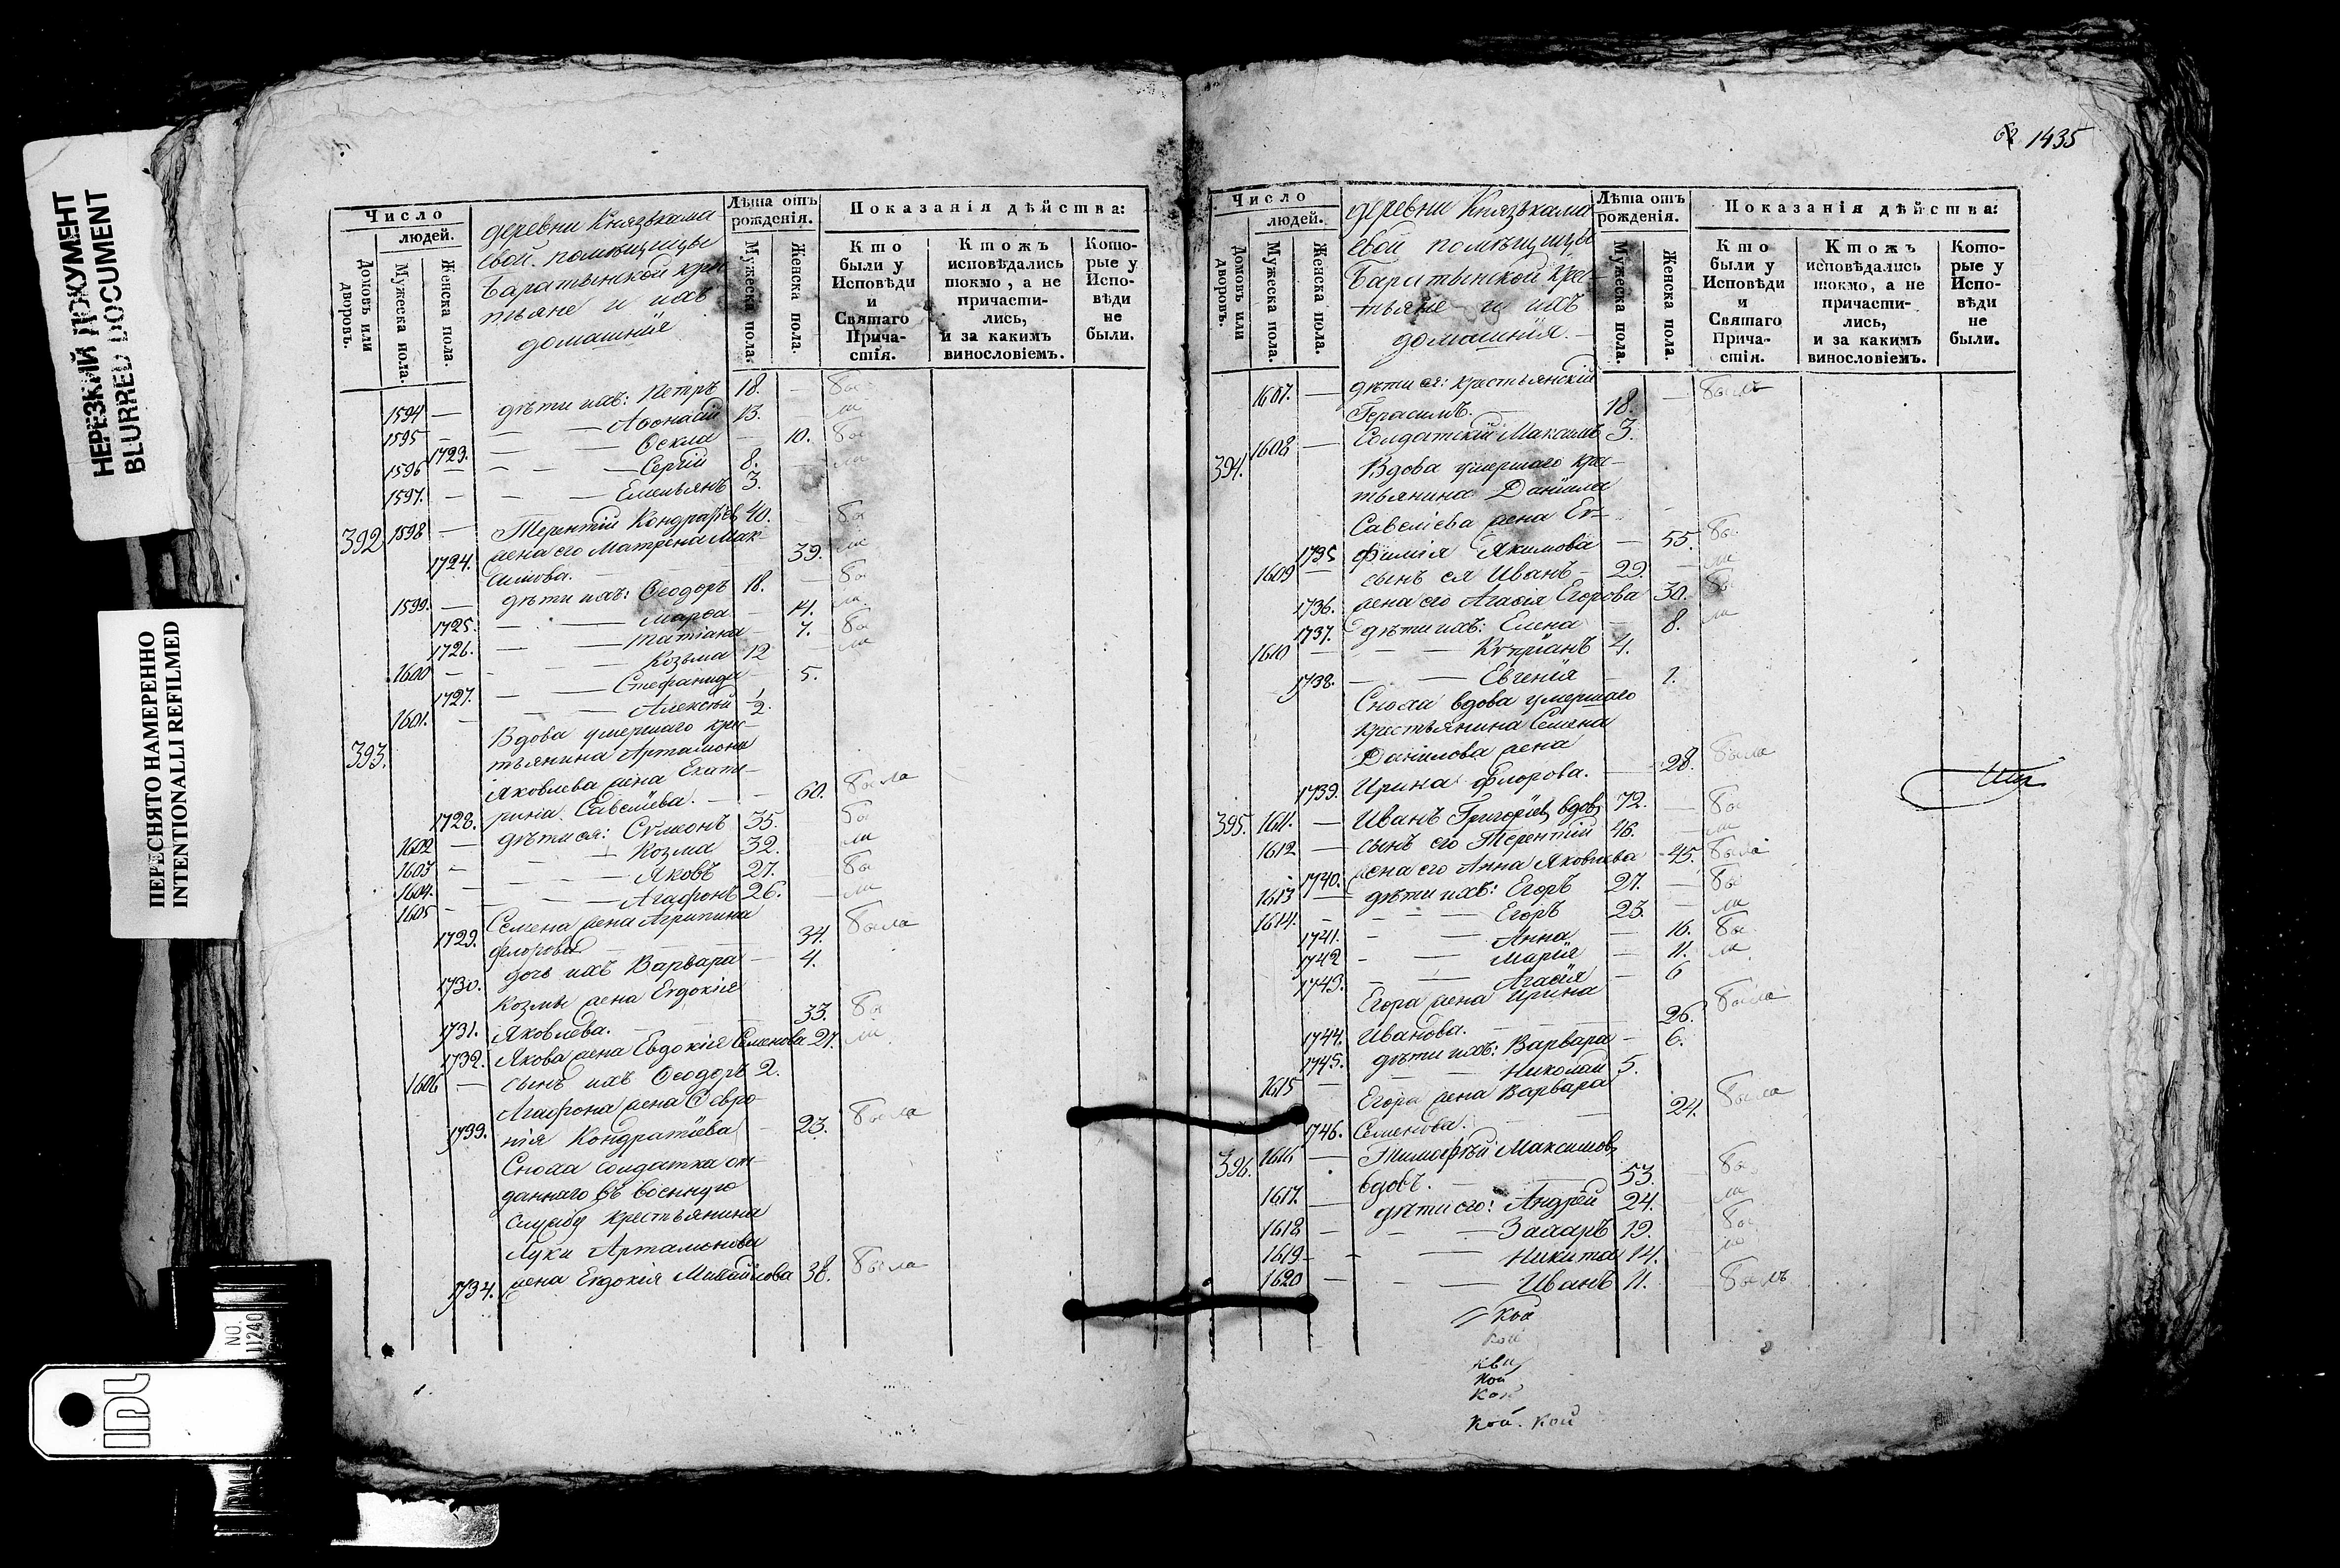 НЕРЕЗКИЙ ДОКУМЕНТ
BLURRED DOCUMENT
ПЕРЕСНЯТО НАМЕРЕННО
INTENTIONALLI REFILMED
NO.
11240
Число
людей.
Домовъ или дворовъ.
Мужеска пола.
Женска пола.
деревни Князъкама
евой помѣщицы
Баратынской крес
тьяне и ихъ
домашнiя
Лѣта отъ рожденiя.
Мужеска пола.
Женска пола.
Показанiя дѣйства:
Кто были у Исповѣди и Святаго Прича-стiя.
Ктожъ исповѣдались токмо, а не причасти-лись, и за какимъ винословiемъ.
Кото-рые у Испо-вѣди не были.
1594 — дѣти ихъ: Петръ 18. бы
1595 — Афонасiй 13. ли
1723. — Өекла — 10. бы
1596 — Сергiй 8. — ли
1597. — Емельянъ 3.
392 1598 — Терентiй Кондратьев 40. бы
жена его Матрена Мак-
1724. симова. — 39. ли
1599. — дѣти ихъ: Өеодоръ 18. — бы
1725. — Марѳа — 14. ли
1726. — Татiана — 7. бы
1600 — Козьма 12 — ли
1727. — Стефанида — 5.
1601. — Алексѣй 1/2.
393. Вдова умершаго крес-
тьянина Артамона
Яковлева жена Екате-
1728. рина Савелiева. — 60. была
1602 — дѣти ея: Сѵмеонъ 35. бы
1603 — Козма 32. ли
1604. — Яковъ 27. — бы
1605 — Агафонъ 26. — ли
Семена жена Агрипина
1729. Флорова — 34. была
1730. дочь ихъ Варвара — 4.
Козмы жена Евдокiя
1731. Яковлева. — 33. бы
1732. Якова жена Евдокiя Семенова 27. ли
1606 — сынъ ихъ Өеодоръ 2.
Агафона жена Февро-
1733. нiя Кондратiева — 23. была
Сноха солдатка от-
даннаго въ военную
службу крестьянина
Луки Артамонова
1734. жена Евдокiя Михайлова 38. была
62 1435
Число
людей.
Домовъ или дворовъ.
Мужеска пола.
Женска пола.
деревни Князъкама
евой помѣщицы
Баратынской крес-
тьяне и ихъ
домашнiя. —
Лѣта отъ рожденiя.
Мужеска пола.
Женска пола.
Показанiя дѣйства:
Кто были у Исповѣди и Святаго Прича-стiя.
Ктожъ исповѣдались токмо, а не причасти-лись, и за какимъ винословiемъ.
Кото-рые у Испо-вѣди не были.
1607. — дѣти ея: крестьянскiй — былъ
Герасимъ. 18.
1608 — Солдатскiй Максимъ 3.
394. Вдова умершаго крес-
тьянина Данiила
Савелiева жена Ев-
1735 фимiя Якимова — 55. бы
1609 — сынъ ея Иванъ — 29. — ли
1736. жена его Агафiя Егорова 30. бы
1737. дѣти ихъ: Елена — 8. ли
1610 — Кѵпрiанъ 4.
1738. — Евгенiя — 1.
Сноха вдова умершаго
крестьянина Семена
Данiилова жена
1739. Ирина Флорова. — 28. была
395. 1611. — Иванъ Григорiев вдов 72. — бы
1612 — сынъ его Терентiй 46. — ли
1740. жена его Анна Яковлева 45. была
1613 — дѣти ихъ: Егоръ 27. — бы
1614. — Егоръ 23. — ли
1741. — Анна — 16. бы
1742 — Марiя — 11. ли
1743. — Агафiя — 6
Егора жена Ирина
1744. Иванова. — 26. была
1745. дѣти ихъ: Варвара — 6.
1615 — Николай 5.
Егора жена Варвара
1746. Семенова. — 24. была
396. 1616 — Тимофѣй Максимов
вдовъ. — 53. бы
1617. — дѣти его: Андрей 24. ли
1618 — Захаръ 19. бы
1619 — Никита 14. ли
1620 — Иванъ 11. — былъ
кой
кой
кви
кой
кой
кой. кой